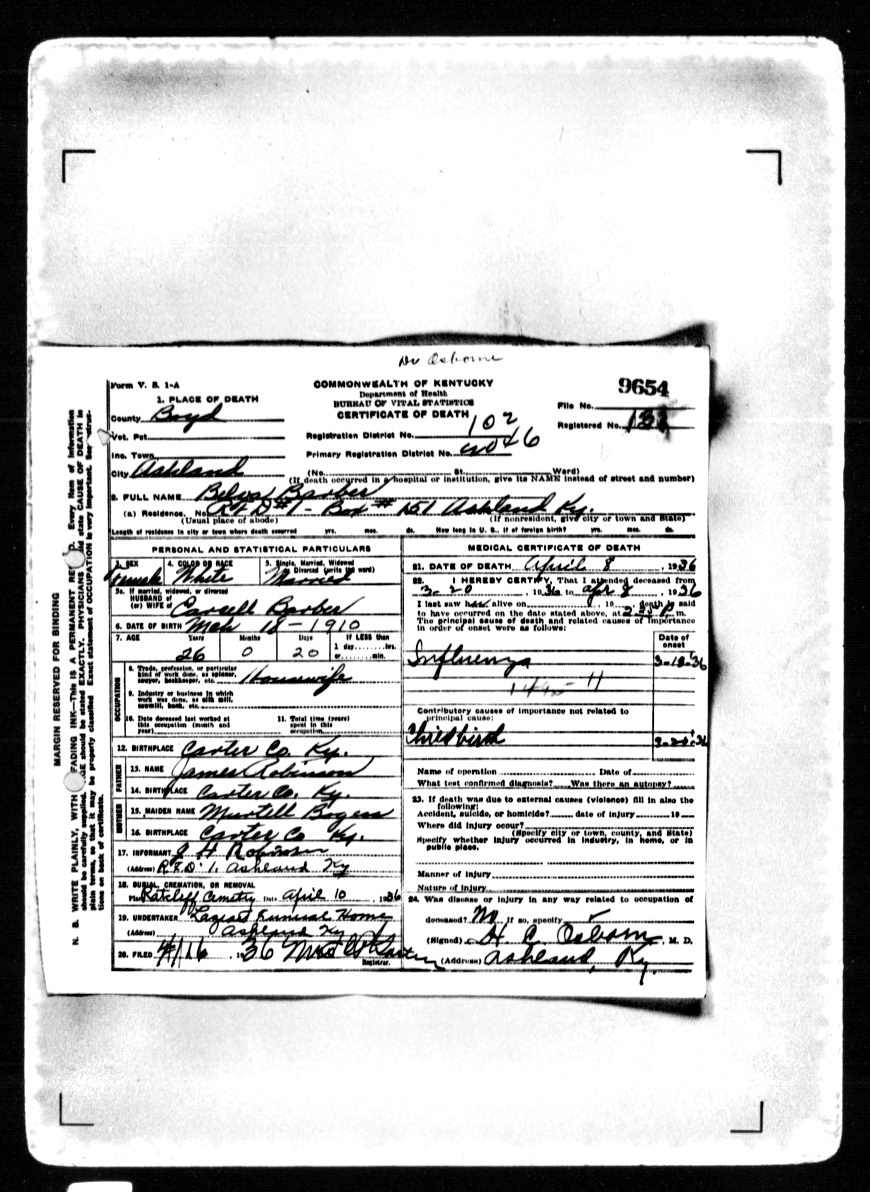 Dr Osborne
Form V. S. 1-A
COMMONWEALTH OF KENTUCKY
Department of Health
BUREAU OF VITAL STATISTICS
CERTIFICATE OF DEATH
9654
File No.
Registered No.
1. PLACE OF DEATH
County Boyd
Vot. Pct.
Inc. Town
City Ashland
Registration District No. 102
Primary Registration District No.
(No. St. Ward)
(If death occurred in a hospital or institution, give its NAME instead of street and number)
2. FULL NAME Barber
(a) Residence. No. R F D #1 - Box # 151 Ashland Ky.
(Usual place of abode) (If nonresident, give city or town and State)
Length of residence in city or town where death occurred yrs. mos. ds. How long in U. S., if of foreign birth? yrs. mos. ds.
PERSONAL AND STATISTICAL PARTICULARS
3. SEX 4. COLOR OR RACE 5. Single, Married, Widowed
or Divorced (write the word)
Female White Married
5a. If married, widowed, or divorced
HUSBAND of
(or) WIFE of Barber
6. DATE OF BIRTH Mch 18 - 1910
7. AGE Years Months Days If LESS than
1 day hrs.
or min.
26 0 20
OCCUPATION
8. Trade, profession, or particular
kind of work done, as spinner,
sawyer, bookkeeper, etc. Housewife
9. Industry or business in which
work was done, as silk mill,
sawmill, bank, etc.
10. Date deceased last worked at
this occupation (month and
year)
11. Total time (years)
spent in this
occupation
12. BIRTHPLACE Carter Co. Ky.
FATHER
13. NAME James Robinson
14. BIRTHPLACE Carter Co. Ky.
MOTHER
15. MAIDEN NAME
16. BIRTHPLACE Carter Co Ky.
17. INFORMANT J H Robinson
(Address) R.F.D. 1. Ashland Ky
18. BURIAL, CREMATION, OR REMOVAL
Place Ratcliff Cemetry Date April 10 1936
19. UNDERTAKER Funeral Home
(Address) Ashland Ky
20. FILED 4/16 1936 Mrs
Registrar.
MEDICAL CERTIFICATE OF DEATH
21. DATE OF DEATH April 8 1936
22. I HEREBY CERTIFY, That I attended deceased from
3-20, 1936 to Apr 8, 1936
I last saw her alive on , 19 death is said
to have occurred on the date stated above, at m.
The principal cause of death and related causes of importance
in order of onset were as follows:
Date of
onset
Influenza 3-18-36
Contributory causes of importance not related to
principal cause:
Childbirth
Name of operation Date of
What test confirmed diagnosis? Was there an autopsy?
23. If death was due to external causes (violence) fill in also the
following:
Accident, suicide, or homicide? date of injury 19
Where did injury occur?
(Specify city or town, county, and State)
Specify whether injury occurred in industry, in home, or in
public place.
Manner of injury
Nature of injury
24. Was disease or injury in any way related to occupation of
deceased? No If so, specify
(Signed) H. C. Osborn, M. D.
(Address) Ashland, Ky.
MARGIN RESERVED FOR BINDING